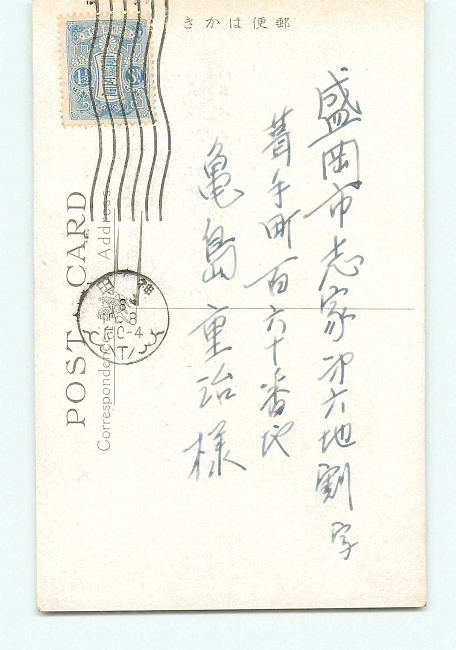 きかはは便郵
盛岡市志家第六地割字
葺手町百六十番地
亀島重治様
POST CARD
Correspondence
Address